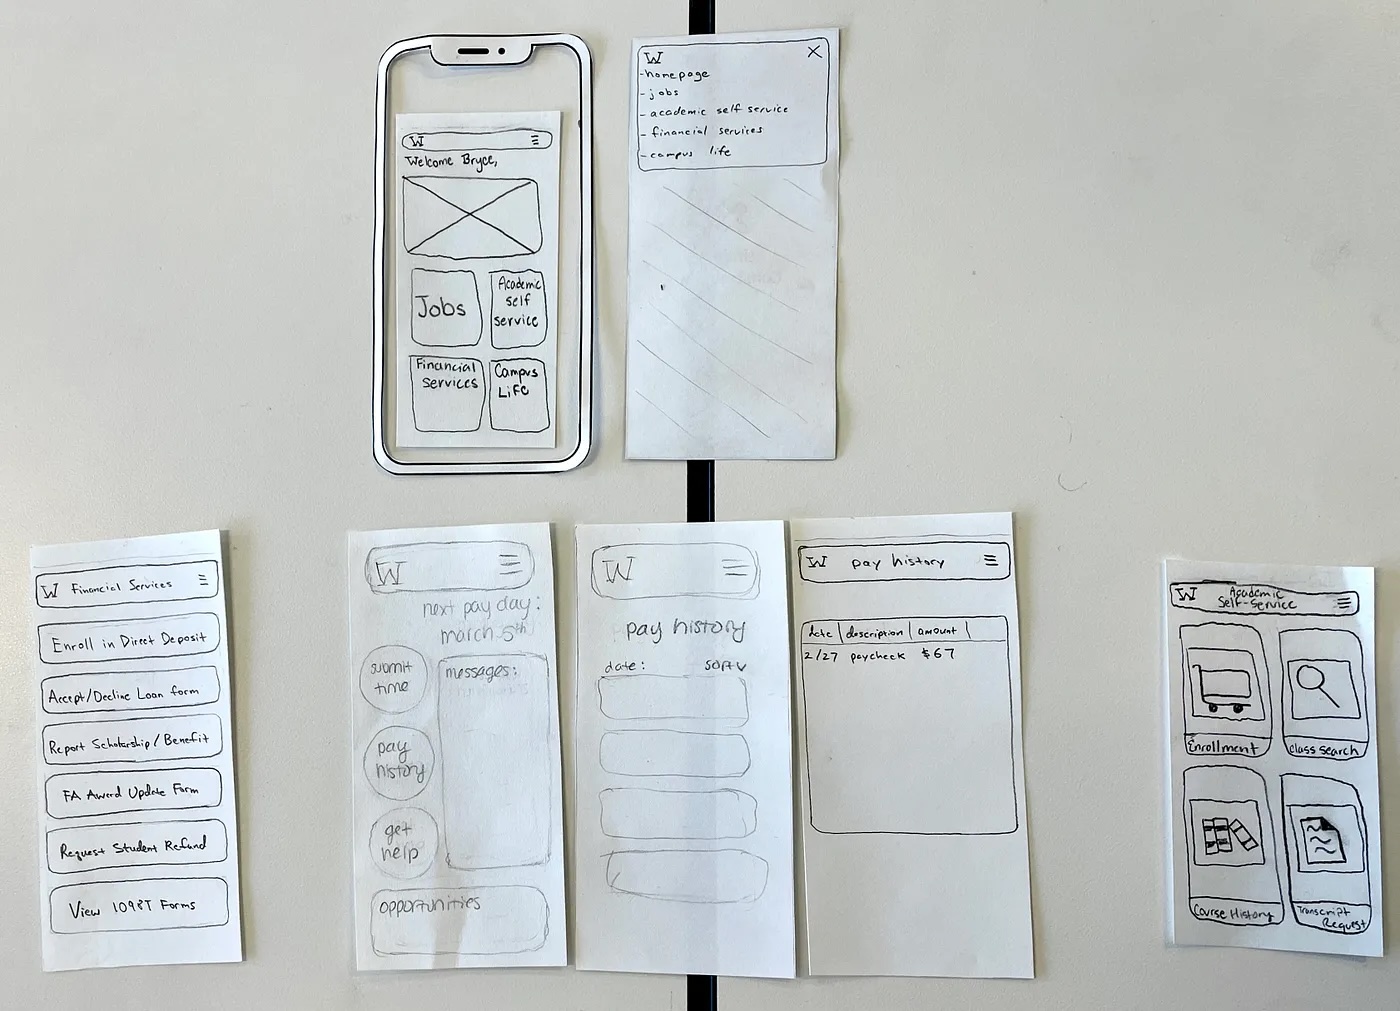 W
Welcome Bryce,
Jobs
Academic
self
service
Financial
Services
Campus
Life
W X
-homepage
-jobs
- academic self service
- financial services
-campus life
W Financial Services
Enroll in Direct Deposit
Accept/Decline Loan form
Report Scholarship/Benefit
FA Award Update Form
Request Student Refund
View 1098T Forms
W
next pay day:
march 5th
submit
time
messages:
pay
history
get
help
opportunities
W
pay history
date: sort v
W pay history
date description amount
2/27 paycheck $67
W Academic
Self-Service
Enrollment
class search
Course History
Transcript
Request